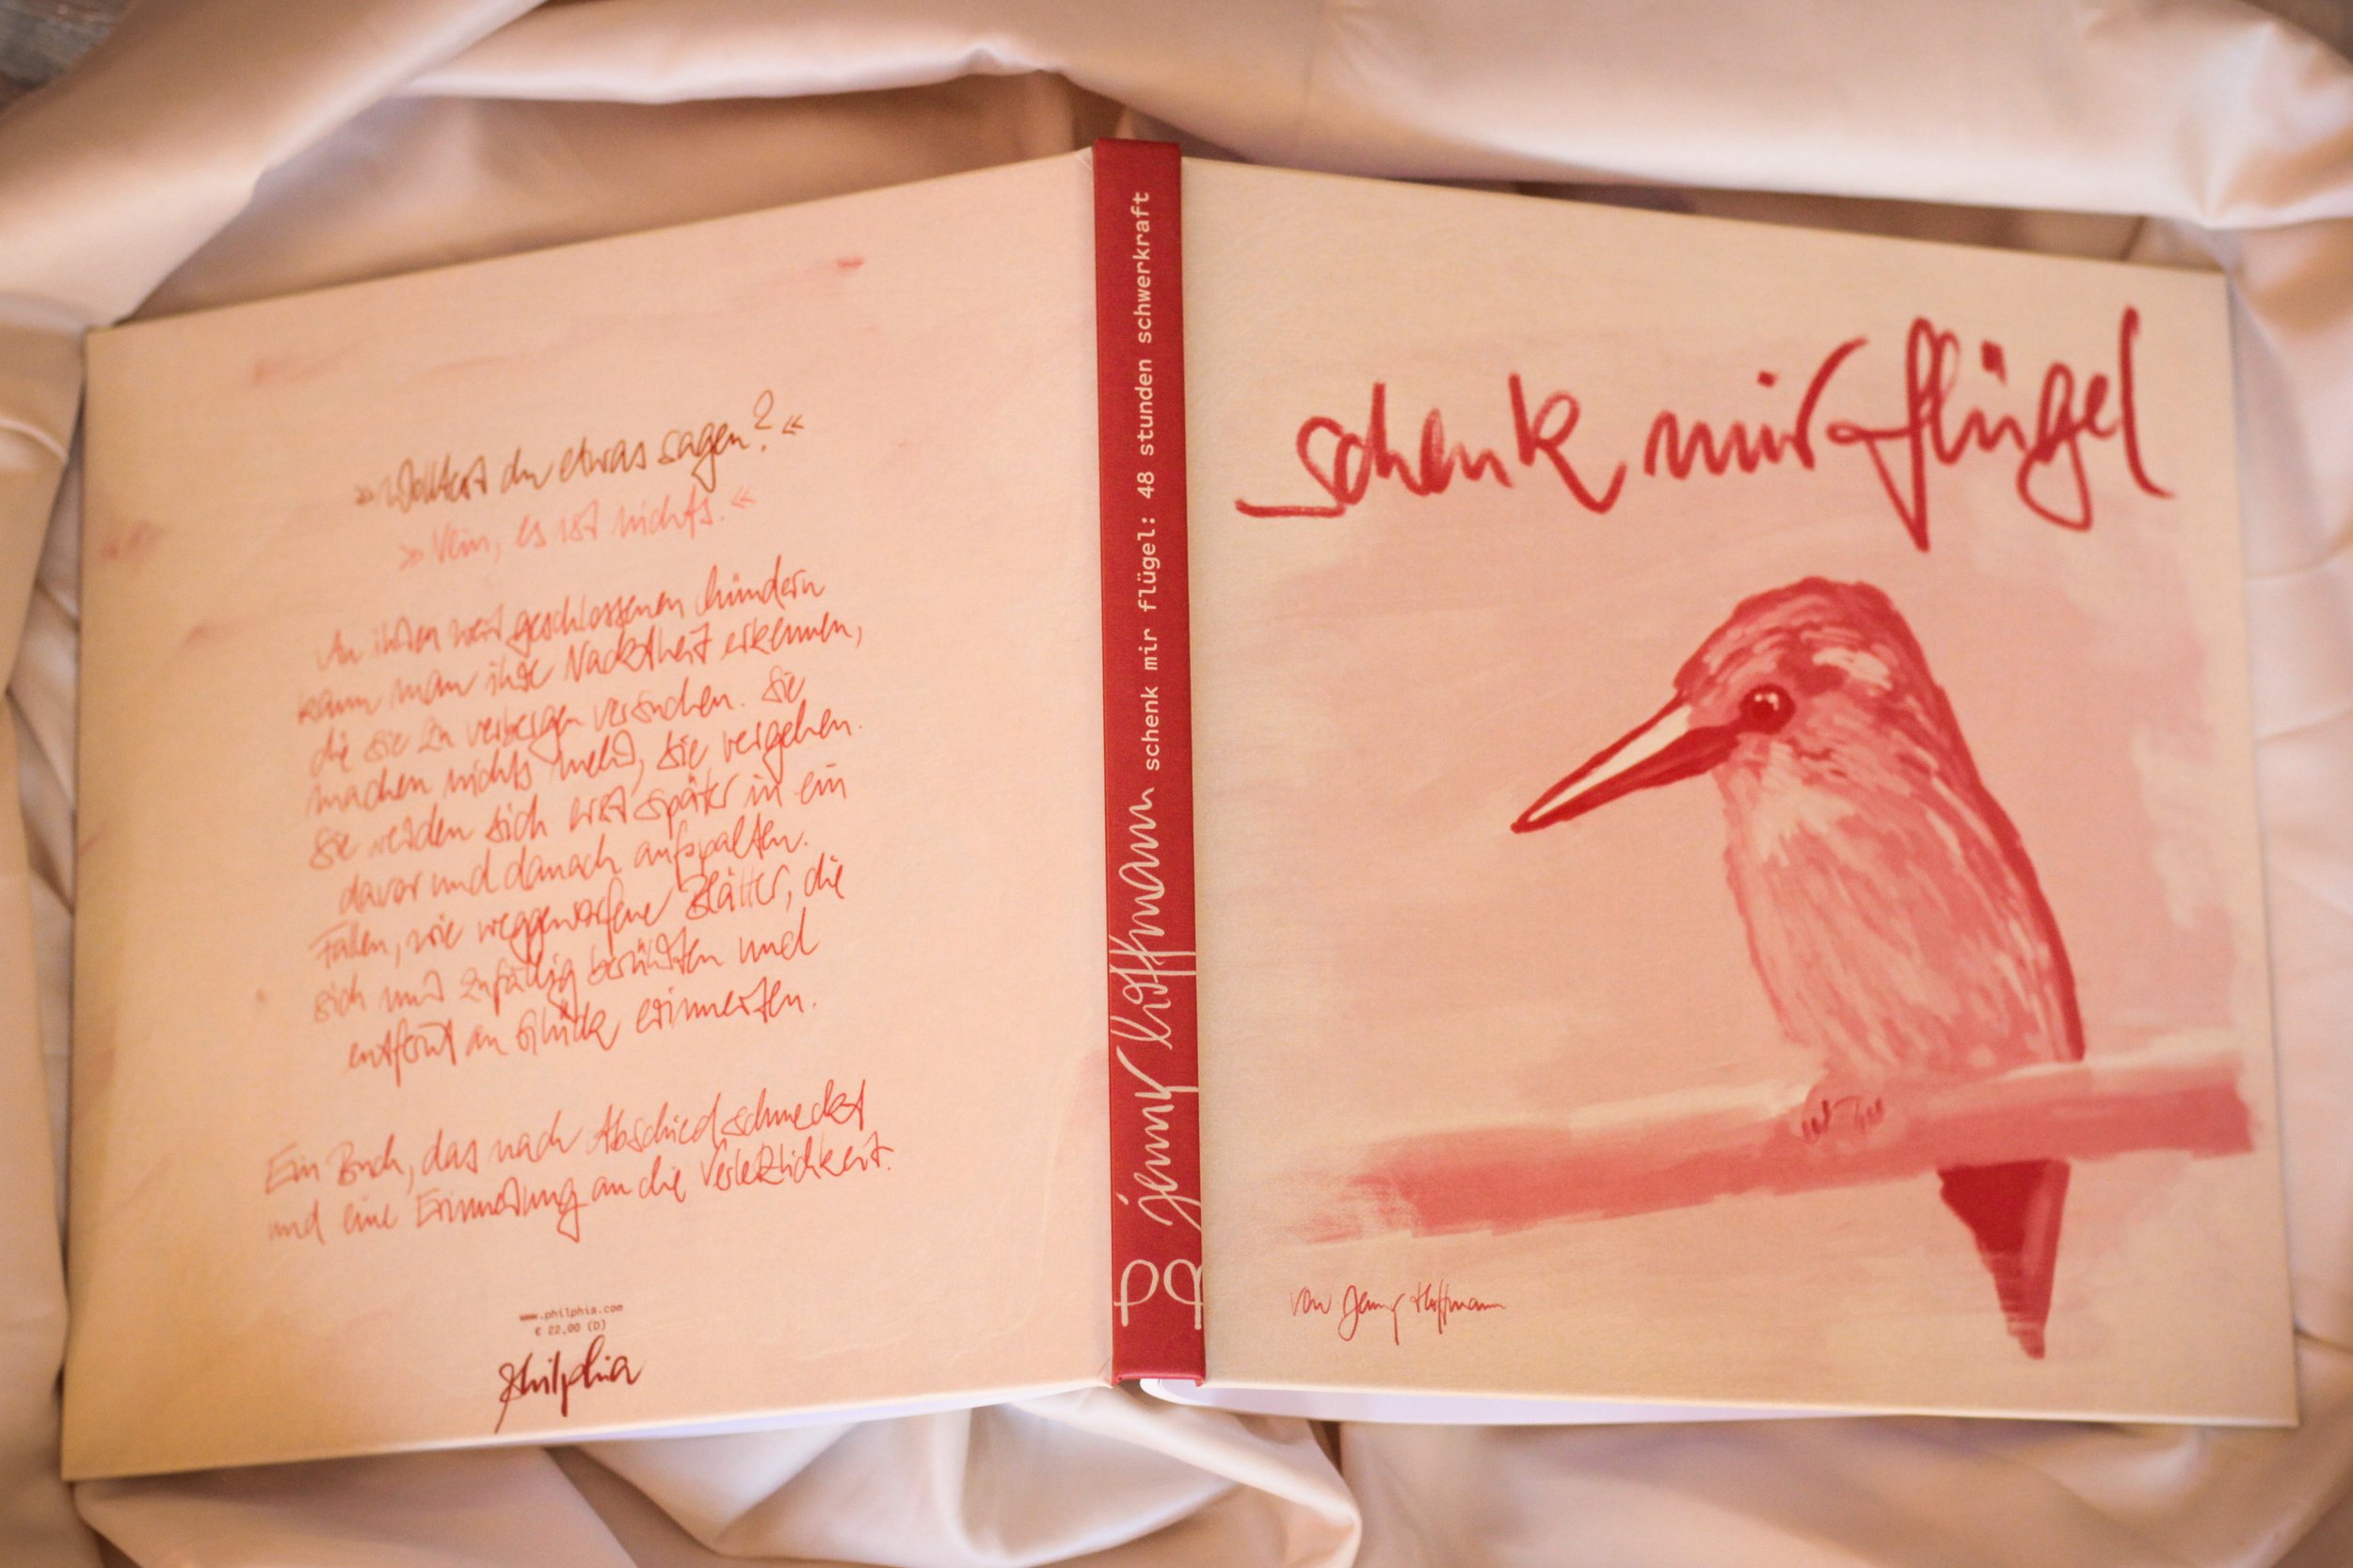 »Wolltest du etwas sagen?«
»Nein, es ist nichts.«
An ihren weit geschlossenen Mündern
kann man ihre Nacktheit erkennen,
die sie zu verbergen versuchen. Sie
machen nichts mehr, sie vergehen.
Sie werden sich erst später in ein
davor und danach aufspalten.
Fallen, wie weggeworfene Blätter, die
sich nur zufällig berührten und
entfernt an Glück erinnerten.
Ein Buch, das nach Abschied schmeckt
und eine Erinnerung an die Verletzlichkeit.
www.philphia.com
€ 22,00 (D)
philphia
jenny hoffmann schenk mir flügel: 48 stunden schwerkraft
schenk mir flügel
von Jenny Hoffmann